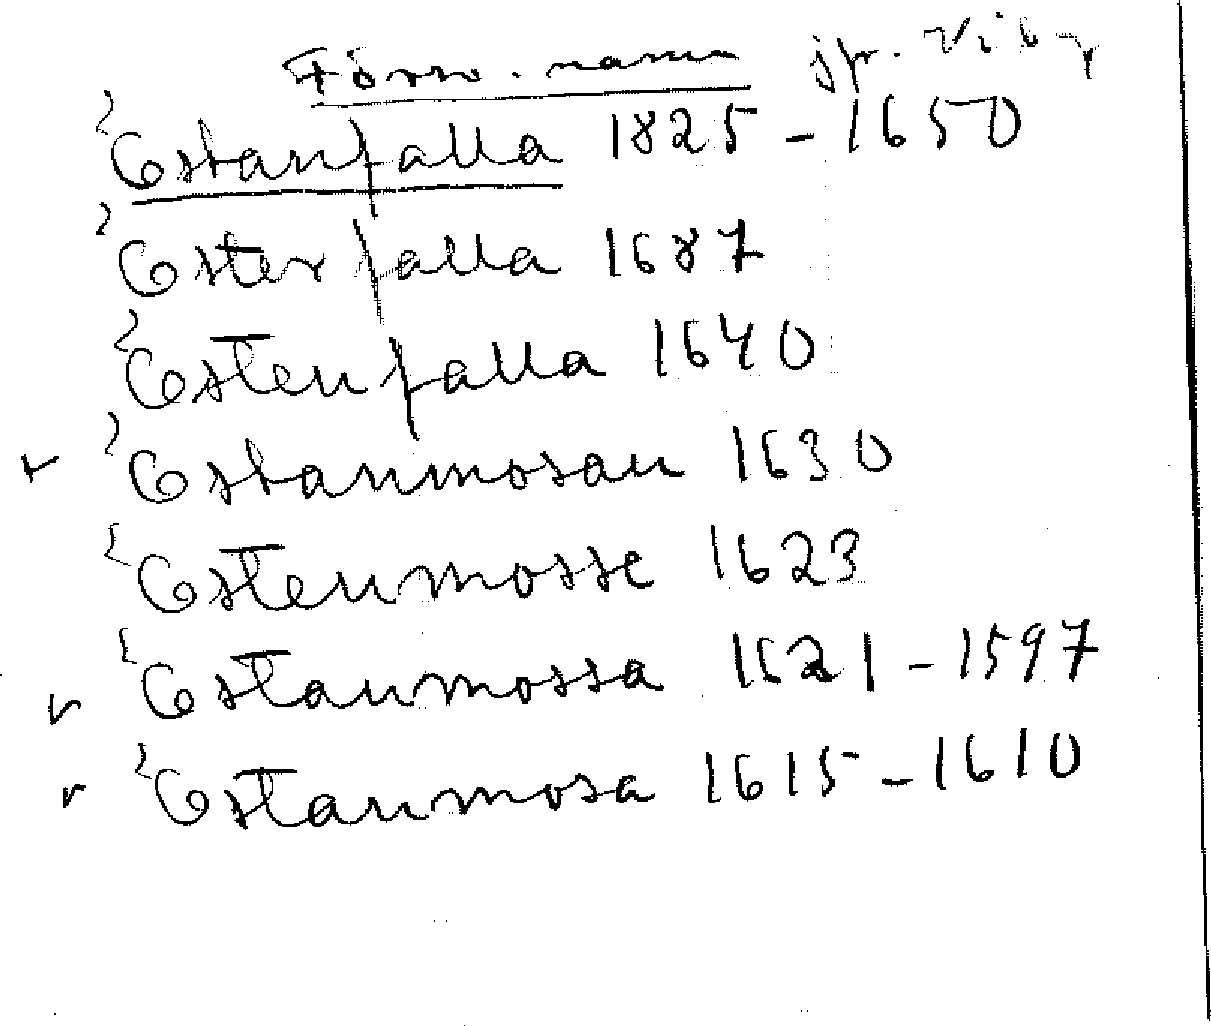 Försv. namn jfr. Viby
Estanfalla 1825 - 1650
Ester falla 1687
Estenfalla 1640
Estanmosan 1630
Estenmosse 1623
Estanmossa 1621 - 1597
Estanmosa 1615 - 1610